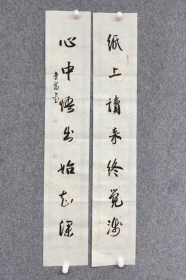 纸上读来终觉浅
心中悟出始知深